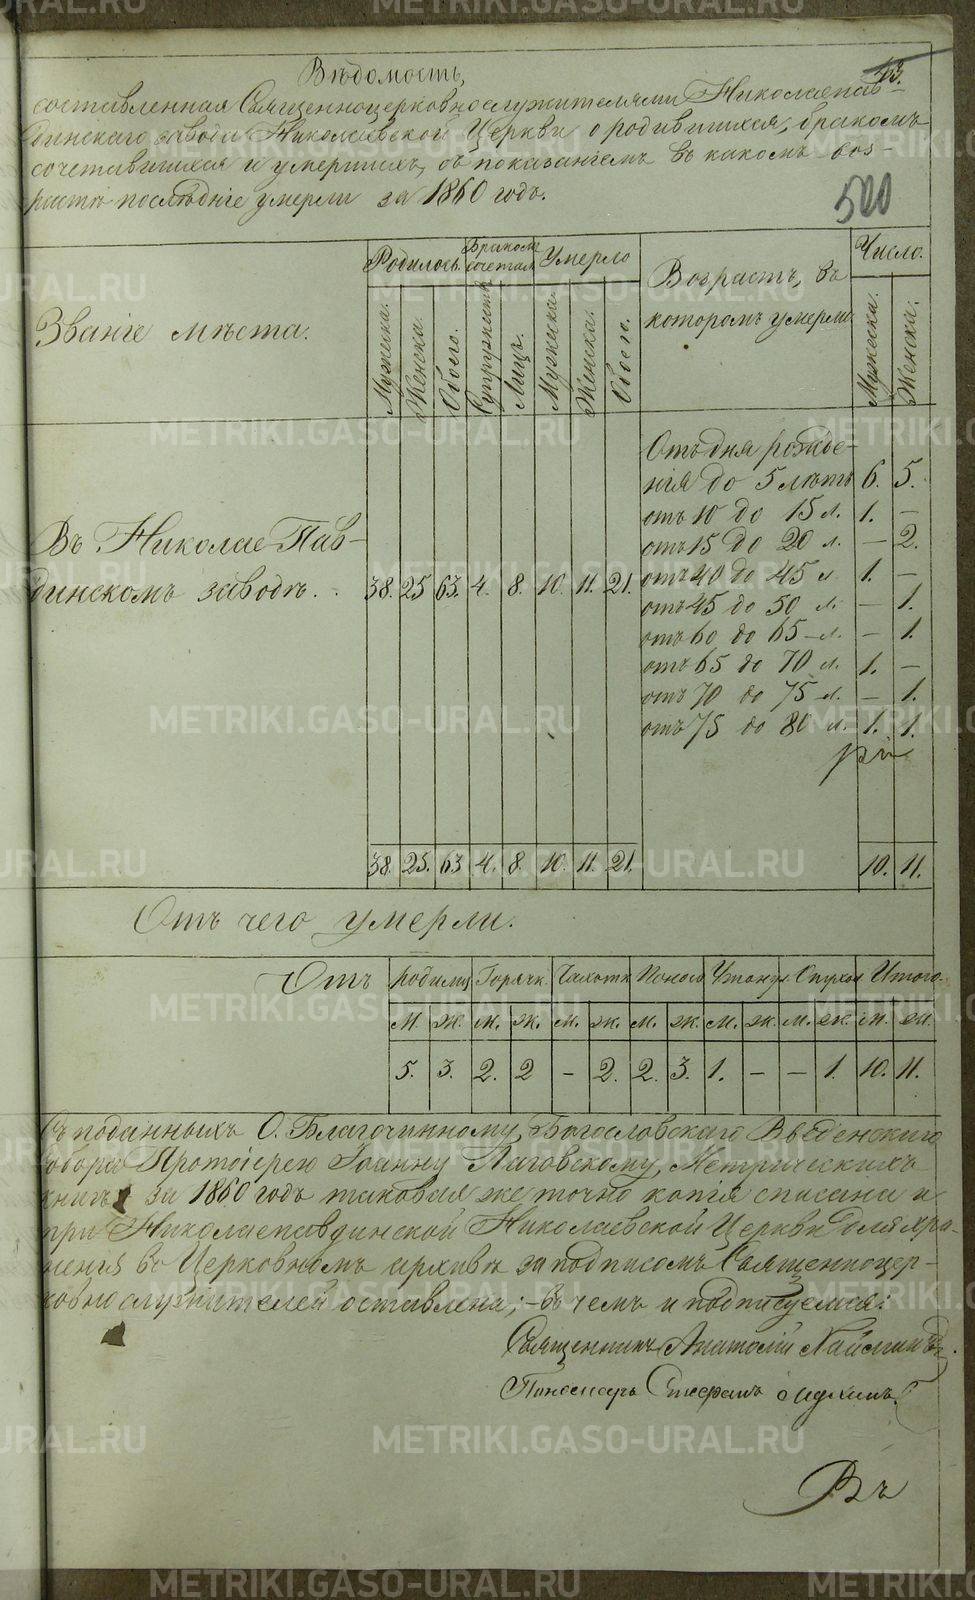 Вѣдомость,
43.
составленная Священноцерковнослужителями Николаепав-
динскаго завода Николаевской Церкви о родившихся, бракомъ
сочетавшихся и умершихъ, съ показаніемъ въ какомъ воз-
растѣ послѣдніе умерли за 1860 годъ.
500
Званіе мѣста.
Родилось. Бракомъ сочетал. Умерло Возрастъ, въ которомъ умерли Число.
Мужеска. Женска. Обоего. Супружествъ Лицъ. Мужеска. Женска. Обоего. Мужеска. Женска.
Отъ дня рожде-
нія до 5 лѣтъ 6. 5.
отъ 10 до 15 л. 1. –
отъ 15 до 20 л. – 2.
Въ Николае-Пав-
динскомъ заводѣ. 38. 25 63. 4. 8. 10. 11. 21.
отъ 40 до 45 л 1. –
отъ 45 до 50 л. – 1.
отъ 60 до 65 л. – 1.
отъ 65 до 70 л. 1. –
отъ 70 до 75 л. – 1.
отъ 75 до 80 л. 1. 1.
38. 25. 63 4. 8. 10. 11. 21. 10. 11.
Отъ чего умерли.
Отъ родимц Горячк. Чахотк Поноса Утонул Опухол Итого.
М. Ж. м. ж. м. ж. м. ж. м. ж. м. ж. м. ж.
5. 3. 2. 2 – 2. 2. 3. 1. – – 1. 10. 11.
Съ поданныхъ О. Благочинному, Богословскаго Введенскаго
Собора Протоіерею Іоанну Лаговскому, Метрическихъ
книгъ за 1860 годъ таковая же точно копія списана и
при Николаепавдинской Николаевской Церкви для хра-
ненія въ Церковномъ архивѣ за подписомъ Священноцер-
ковнослужителей оставлена; – въ чемъ и подписуемся:
Священникъ Анатолій
Пономарь Стефанъ
Въ
METRIKI.GASO-URAL.RU